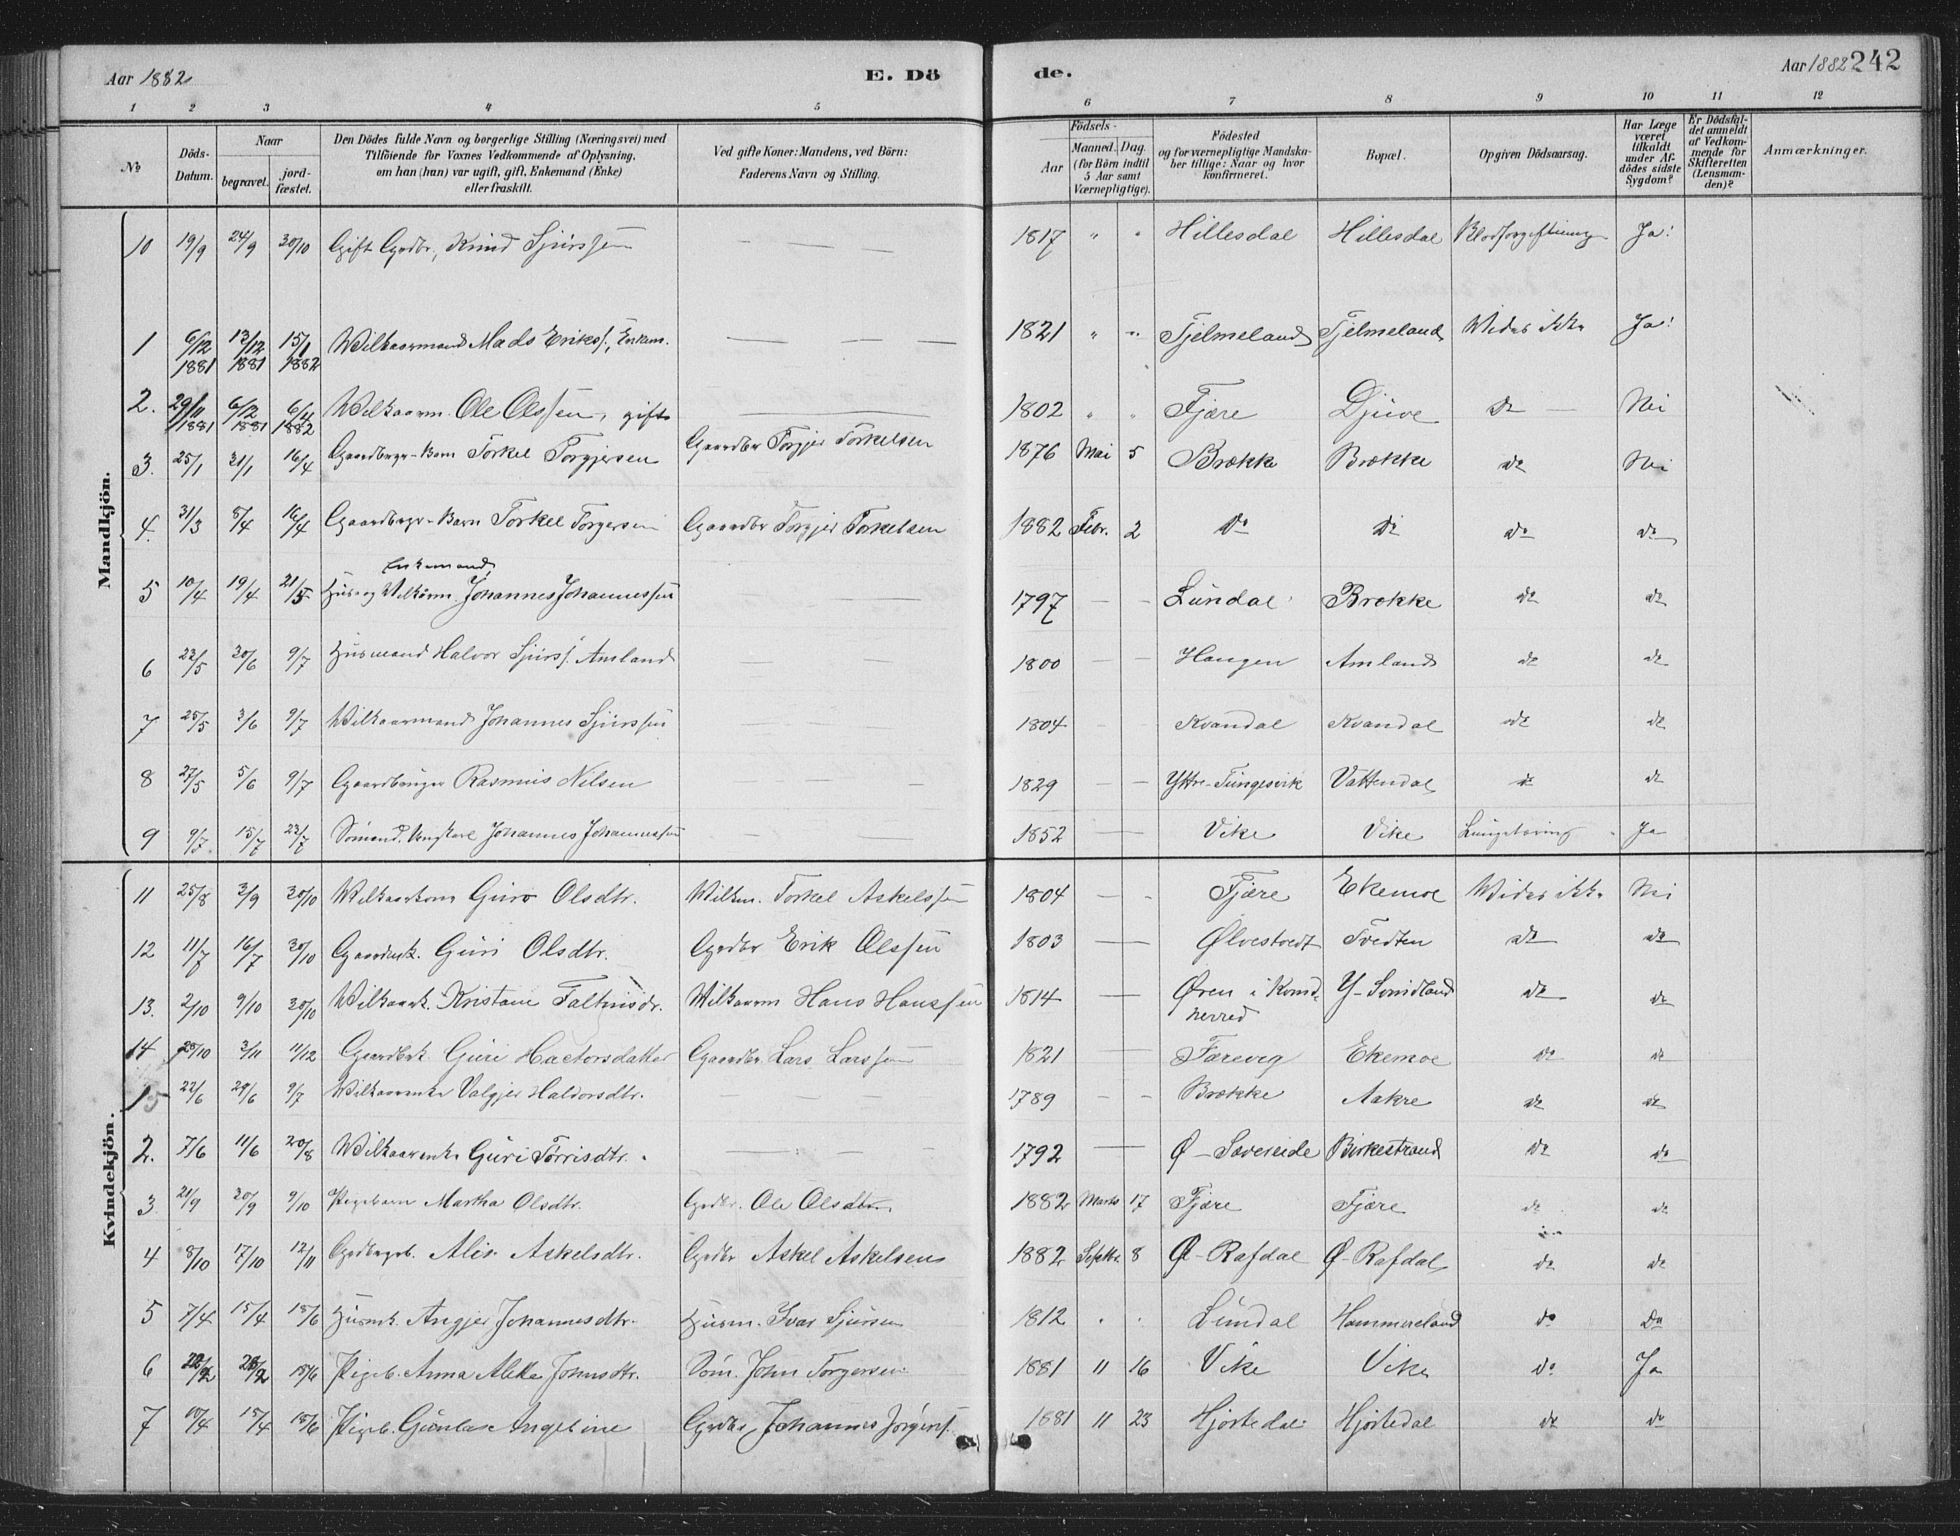 Aar 1882 E. Dö de. Aar 1882 242
1 2 3 4 5 6 7 8 9 10 11 12
No
Döds-Datum.
Naar
begravet.
jord-fæstet.
Den Dödes fulde Navn og borgerlige Stilling (Næringsvei) med
Tilföiende for Voxnes Vedkommende af Oplysning,
om han (hun) var ugift, gift, Enkemand (Enke)
eller fraskilt.
Ved gifte Koner: Mandens, ved Börn:
Faderens Navn og Stilling.
Födsels-
Aar
Maaned. Dag.
(for Börn indtil
5 Aar samt
Værnepligtige).
Födested
og for værnepligtige Mandska-
ber tillige: Naar og hvor
konfirmeret.
Bopæl.
Opgiven Dödsaarsag.
Har Læge
været
tilkaldt
under Af-
dödes sidste
Sygdom?
Er Dödsfal-
det anmeldt
af Vedkom-
mende for
Skifteretten
(Lensman-
den)?
Anmærkninger.
Mandkjön.
10 19/9 24/9 30/10 Gift Grdbr, Knud Sjurssen — — 1817 " " Hillesdal Hillesdal Blodforgiftning Ja!
1 6/12 1881 13/12 1881 15/1 1882 Wilkaarmand Mads Erikss, Enkem. — — — 1821 " " Tjelmeland Tjelmeland Wides ikke Ja!
2. 29/11 1881 6/12 1881 6/4 1882 Wilkaarm. Ole Olssen, gift — 1802 " " Fjære Djuve do — Nei
3. 25/1 31/1 16/4 Gaardbrgr-Barn Torkel Torgjersen Gaardbr Torgjer Torkelsen 1876 Mai 5 Brække Brække do Nei
4. 31/3 8/4 16/4 Gaardbrgr-Barn Torkel Torgersen Gaardbr Torgjer Torkelsen 1882 Febr. 2 do do do do
Enkemand
5 10/4 19/4 21/5 Hus og Wilkårm. Johannes Johannessen — — 1797 — — Lundal Brekke do do
6 22/5 20/6 9/7 Husmand Halvor Sjurss. Amland — — 1800 — — Haugen Amland do do
7 25/5 3/6 9/7 Wilkaarmand Johannes Sjurssen — — 1804 — — Kvandal Kvandal do do
8 27/5 5/6 9/7 Gaardbruger Rasmus Nilsen — — 1829 — — Yttre-Tungesvik Vattendal do do
9 9/7 15/7 23/7 Sömand, Ungkarl Johannes Johannessen — — 1852 — — Vike Vike Lungetæring Ja
Kvindekjön.
11 25/8 3/9 30/10 Wilkaarkone Guro Olsdtr. Wilkm. Torkel Askelssen 1804 — - Fjære Ekemoe Wides ikke Nei
12 11/7 16/7 30/10 Gaardmk. Guri Olsdtr. Grdbr Erik Olssen 1803 — Ølvestvedt Tvedten do do
13. 2/10 9/10 30/10 Wilkaark. Kristane Faltinsdr. Wilkaarm Hans Hanssen 1814 — Øren i Kvind-herred Y-Svindland do do
14 25/10 3/11 11/12 Gaardbrk Guri Hactorsdatter Gaardbr. Lars Larssen 1821 — Fareveg Ekemoe do do
15 22/6 29/6 9/7 Wilkaarenke Valgjer Haldorsdtr. — — — 1789 — — Brække Aakre do do
2. 7/6 11/6 20/8 Wilkaarenke Guri Tørrisdtr. — — — 1792 — Ø-Sævereide Birkestrand do do
3. 21/9 30/9 9/10 Pigebarn Martha Olsdtr. Grdbr. Ole Olsen 1882 Marts 17 Fjære Fjære do do
4 8/10 17/10 12/11 Grdbrgrb. Alis Askelsdtr. Grdbr Askel Askelsens 1882 Septbr. 8 Ø-Rafdal Ø-Rafdal do do
5 7/4 15/4 18/6 Husmk. Angjer Johannesdtr. Husm. Ivar Sjursen 1812 " " Lundal Hammereland do Do
6 22/2 28/2 18/6 Pigeb. Anna Aleke Johnsdtr. Söm. John Torgersen 1881 11 16 Vike Vike do Ja
7 10/4 15/4 18/6 Pigeb. Gunla Angeline Grdbr Johannes Jörgens. 1881 11 23 Hjortedal Hjortedal do do